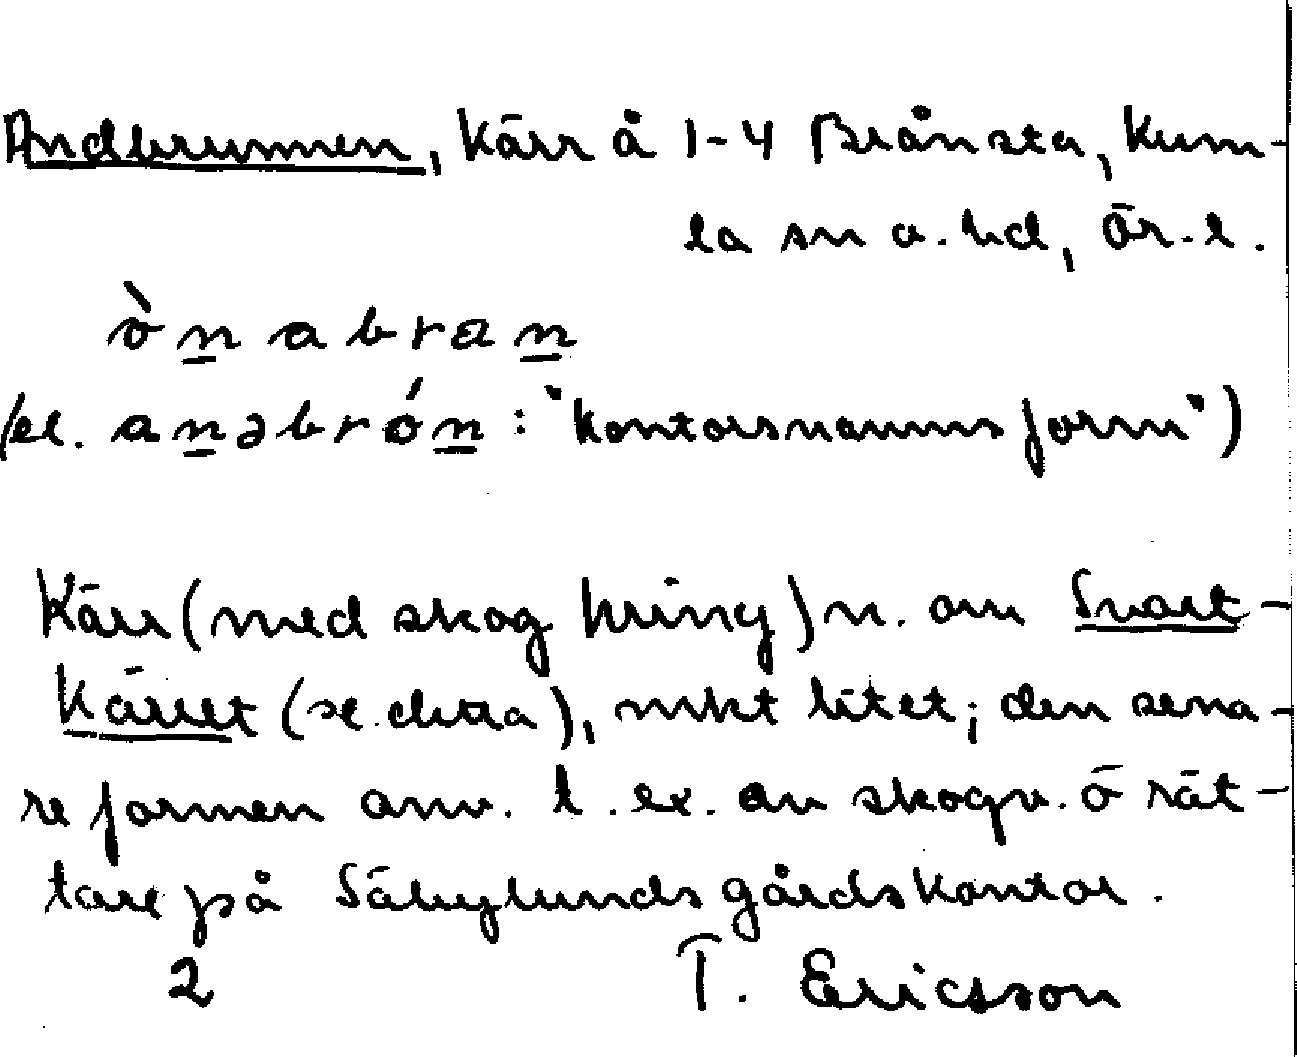 Andbrunnen, Kärr å 1-4 Brånsta, Kum-
la sn o. hd, Ör. l.
ònabran
(el. anəbrón: "kontorsnamnsform")
Kärr (med skog kring) n. om Svart-
kärret (se detta), mkt litet; den sena-
re formen anv. t. ex. av skogv. o rät-
tare på Säbylunds gårdskontor.
2 T. Ericsson